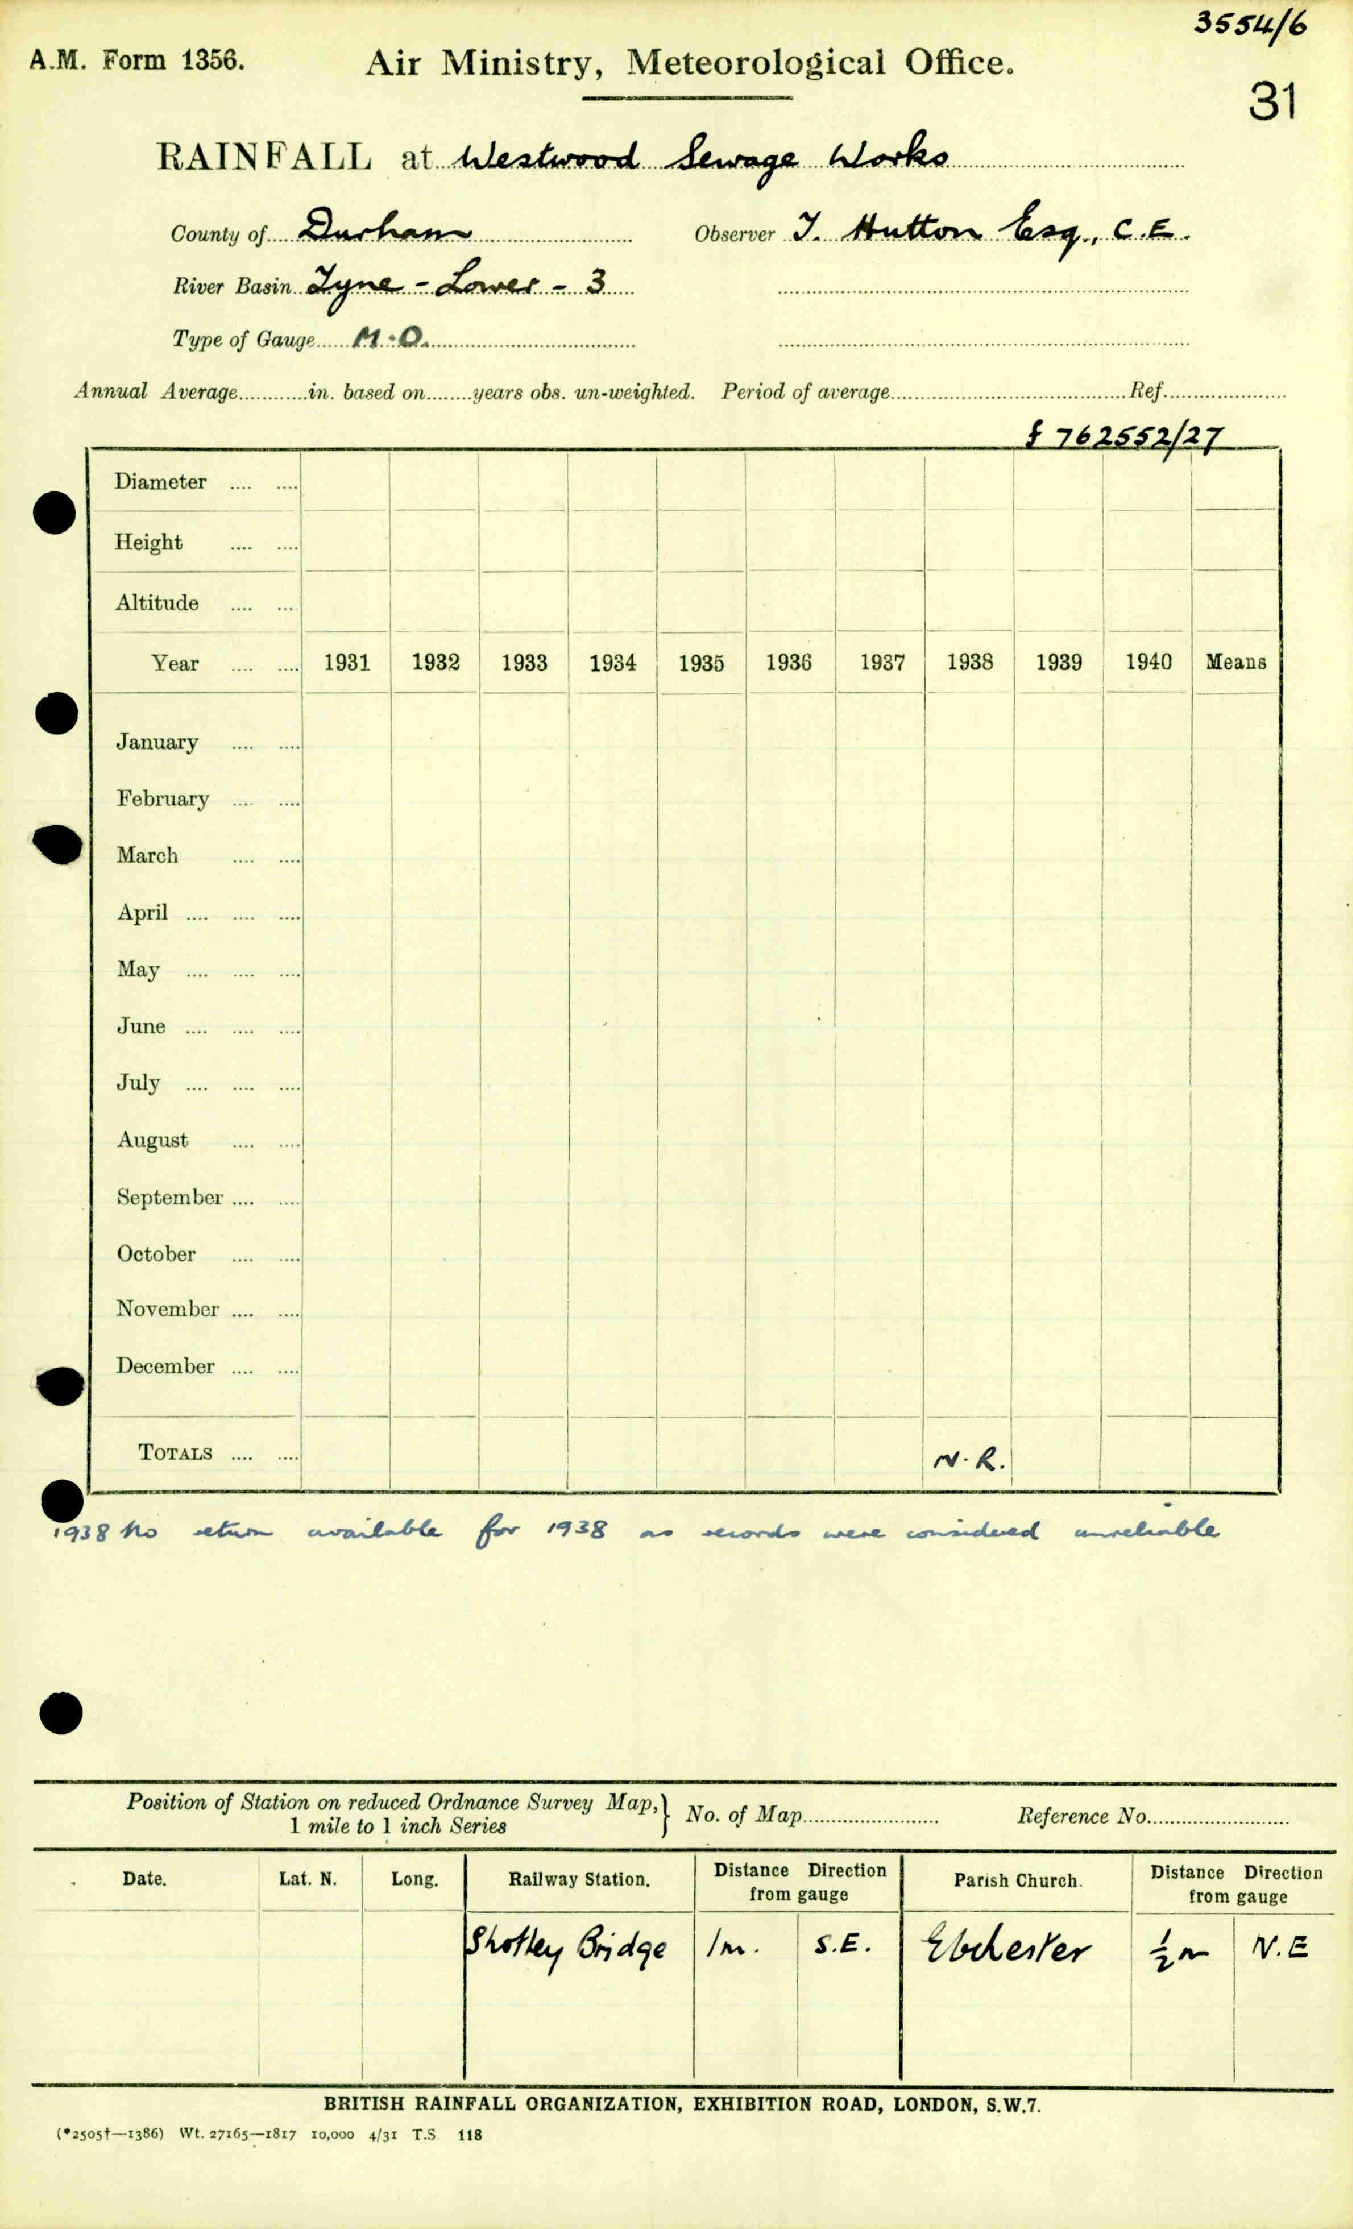 3554/6
A.M. Form 1356.
Air Ministry, Meteorological Office.
31
RAINFALL at Westwood Sewage Works
County of Durham Observer T. Hutton Esq., C.E.
River Basin Tyne - Lower - 3
Type of Gauge M.O.
Annual Average............in. based on........years obs. un-weighted. Period of average............Ref............
£ 762552/27
Diameter .... ....
Height .... ....
Altitude .... ....
Year .... .... 1931 1932 1933 1934 1935 1936 1937 1938 1939 1940 Means
January .... ....
February .... ....
March .... ....
April .... .... ....
May .... .... ....
June .... .... ....
July .... .... ....
August .... ....
September .... ....
October .... ....
November .... ....
December .... ....
TOTALS .... .... N.R.
1938 No return available for 1938 as records were considered unreliable
Position of Station on reduced Ordnance Survey Map,} No. of Map............ Reference No............
1 mile to 1 inch Series
Date. Lat. N. Long. Railway Station. Distance Direction from gauge Parish Church. Distance Direction from gauge
Shotley Bridge 1m. S.E. Ebchester ½m N.E
BRITISH RAINFALL ORGANIZATION, EXHIBITION ROAD, LONDON, S.W.7.
(*2505†—1386) Wt. 27165—1817 10,000 4/31 T.S 118